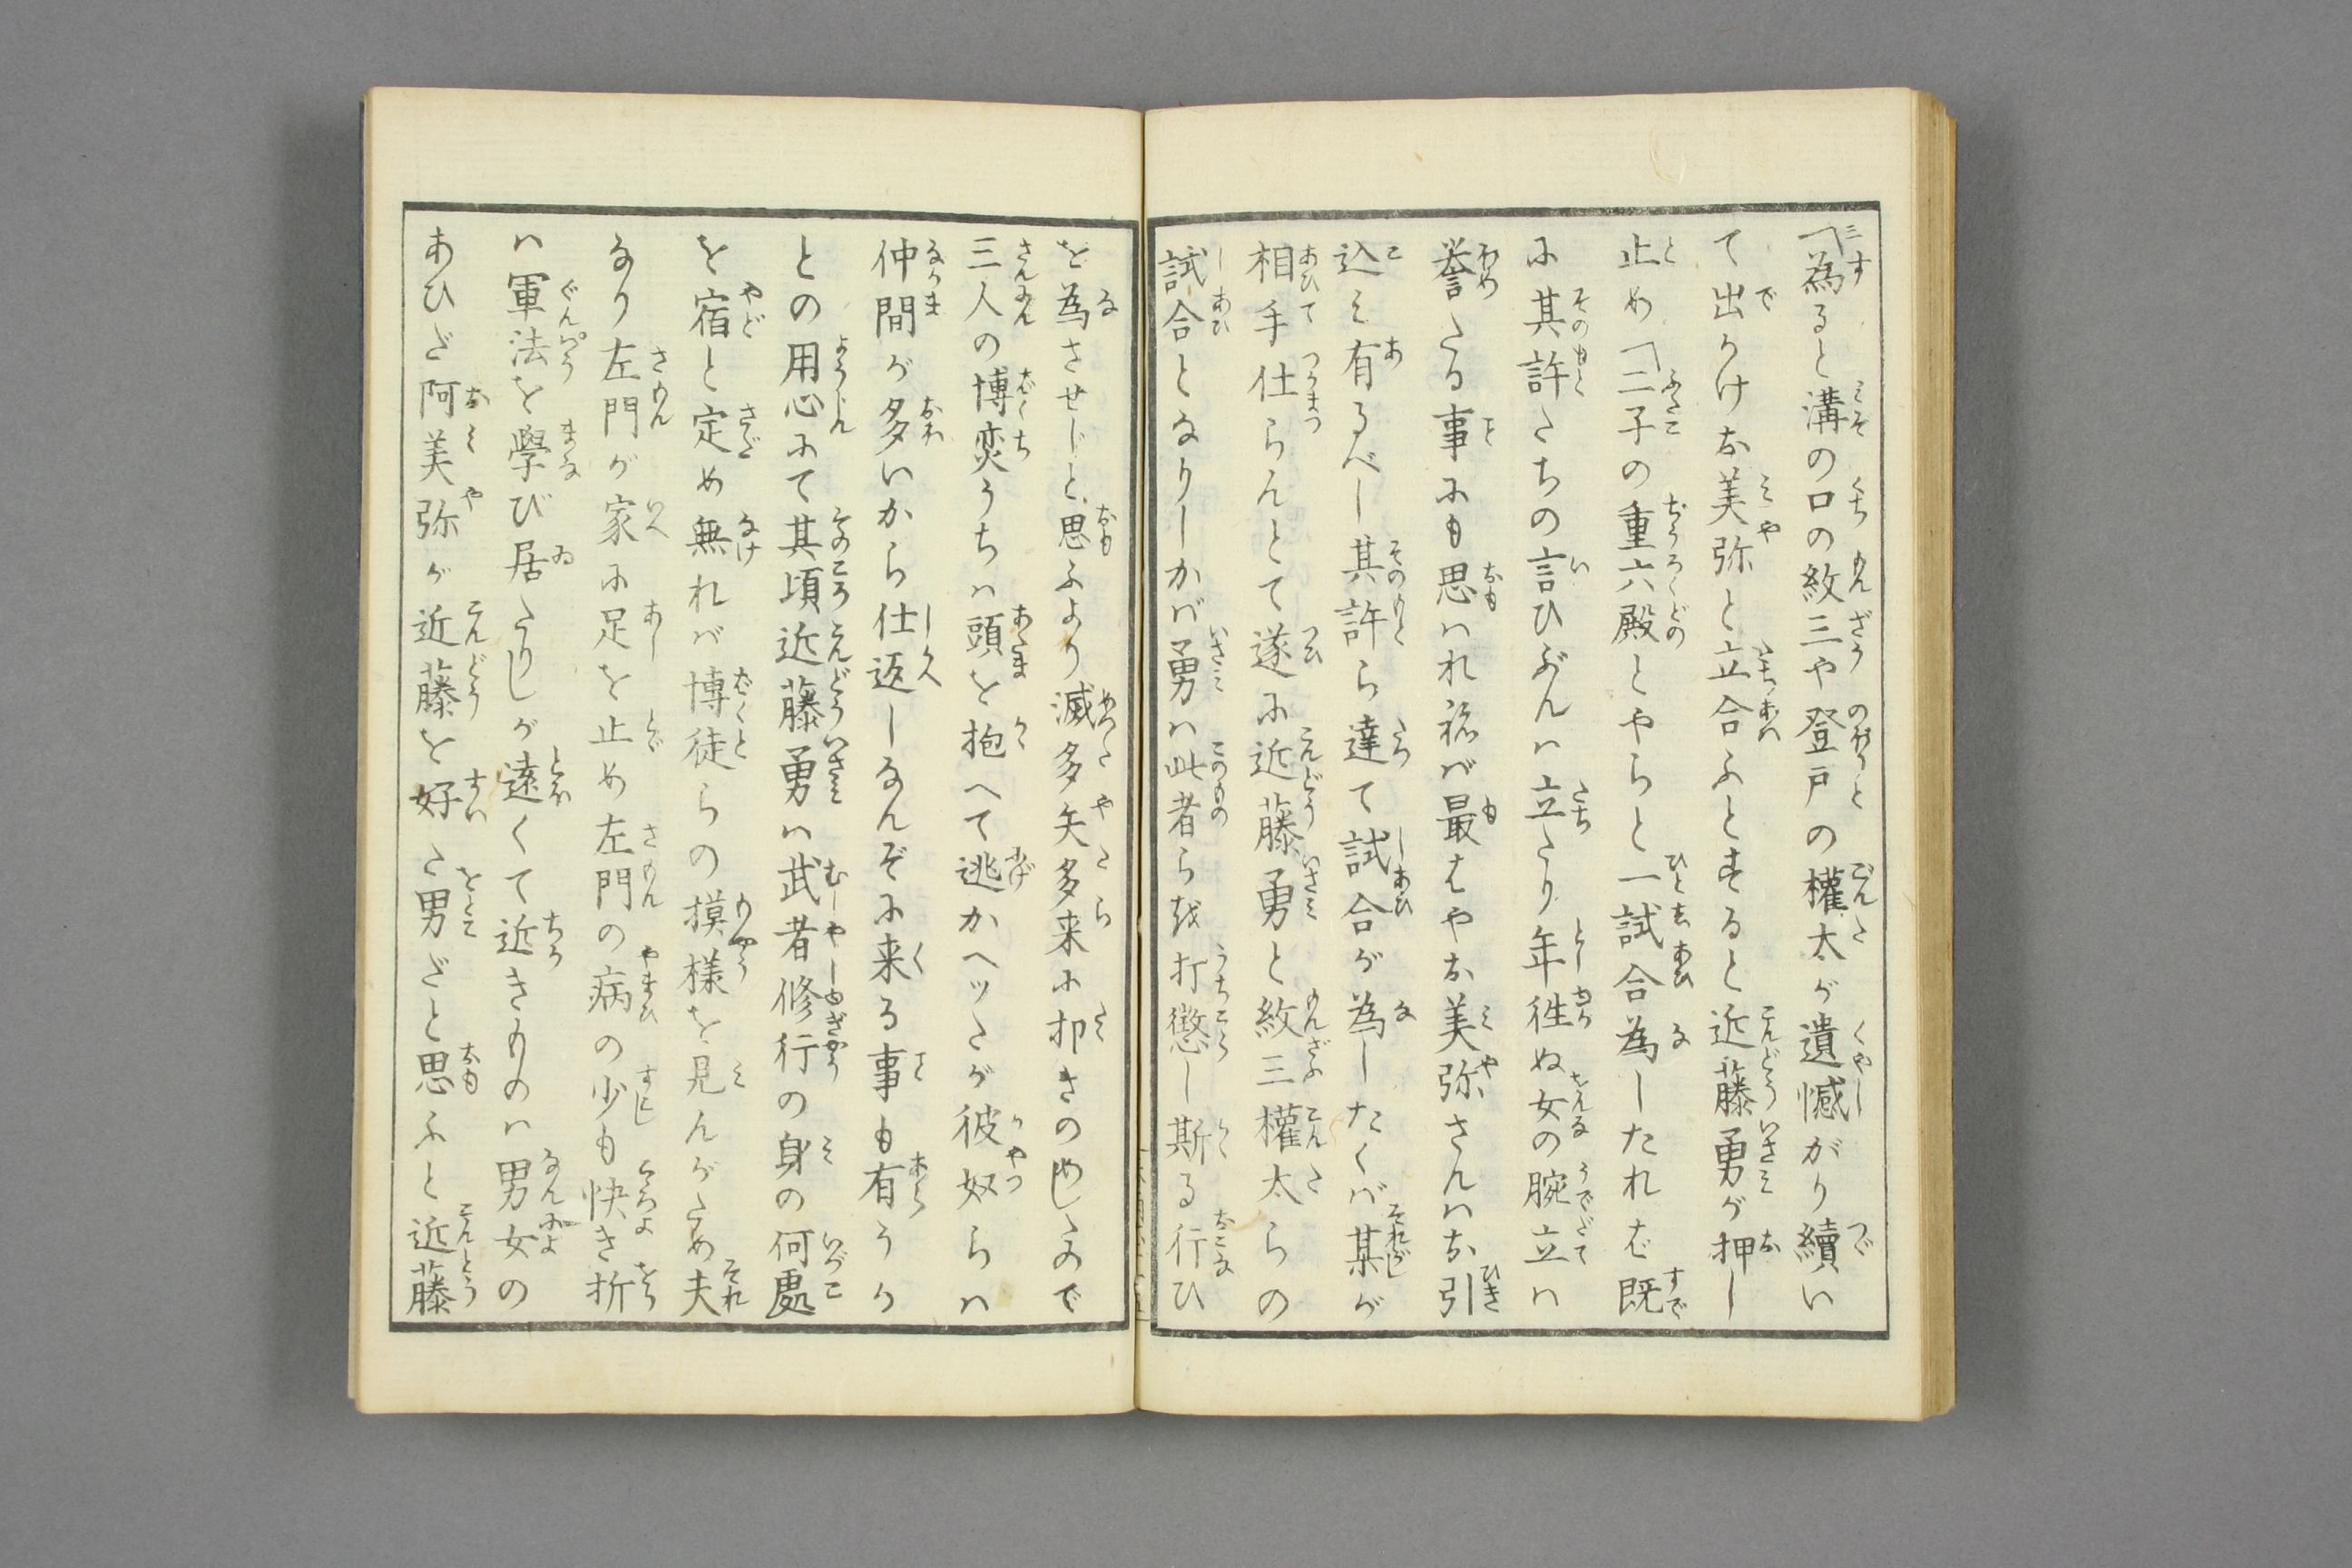 「為ると溝の口の紋三や登戸の權太が遺憾がり續い
て出かけお美弥と立合ふとすると近藤勇が押し
止め「二子の重六殿とやらと一試合為したれば既
に其許たちの言ひぶんハ立たり年徃ぬ女の腕立ハ
誉たる事にも思ハれねバ最はやお美弥さんハお引
込み有るべし其許ら達て試合が為したくバ某が
相手仕らんとて遂に近藤勇と紋三權太らの
試合となりしかバ勇ハ此者らを打懲し斯る行ひ
を為させじと思ふより滅多矢多来に叩きのめしたので
三人の博奕うちハ頭を抱へて逃かへッたが彼奴らハ
仲間が多いから仕返しなんぞに来る事も有うか
との用心にて其頃近藤勇ハ武者修行の身の何處
を宿と定め無れバ博徒らの摸樣を見んがため夫
なり左門が家に足を止め左門の病の少も快き折
ハ軍法を學び居たりしが遠くて近きものハ男女の
あひだ阿美弥が近藤を好た男だと思ふと近藤